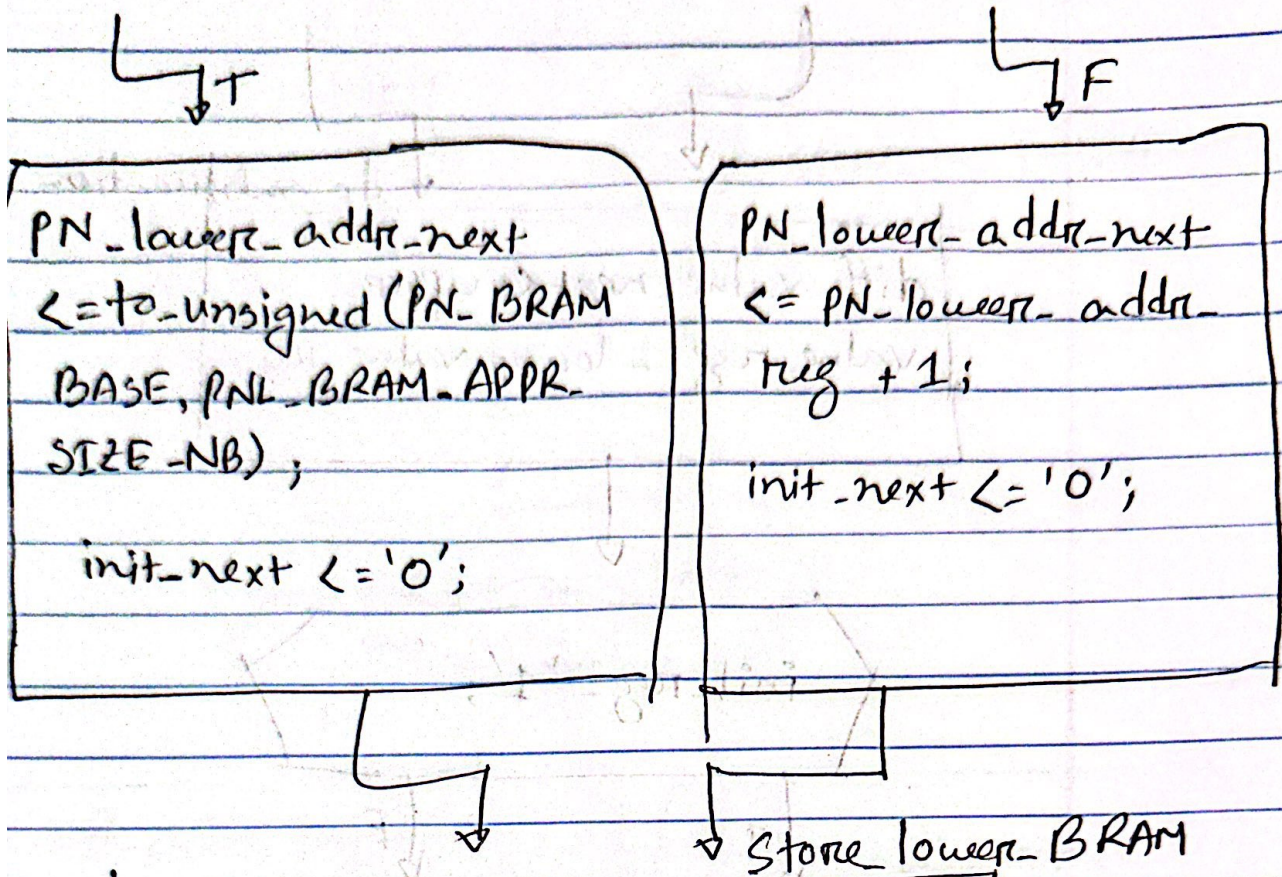 T
F
PN_lower_addr_next
<= to_unsigned (PN_BRAM
BASE, PNL_BRAM_APPR_
SIZE_NB);
init_next <= '0';
PN_lower_addr_next
<= PN_lower_addr_
reg + 1;
init_next <= '0';
Store_lower_BRAM